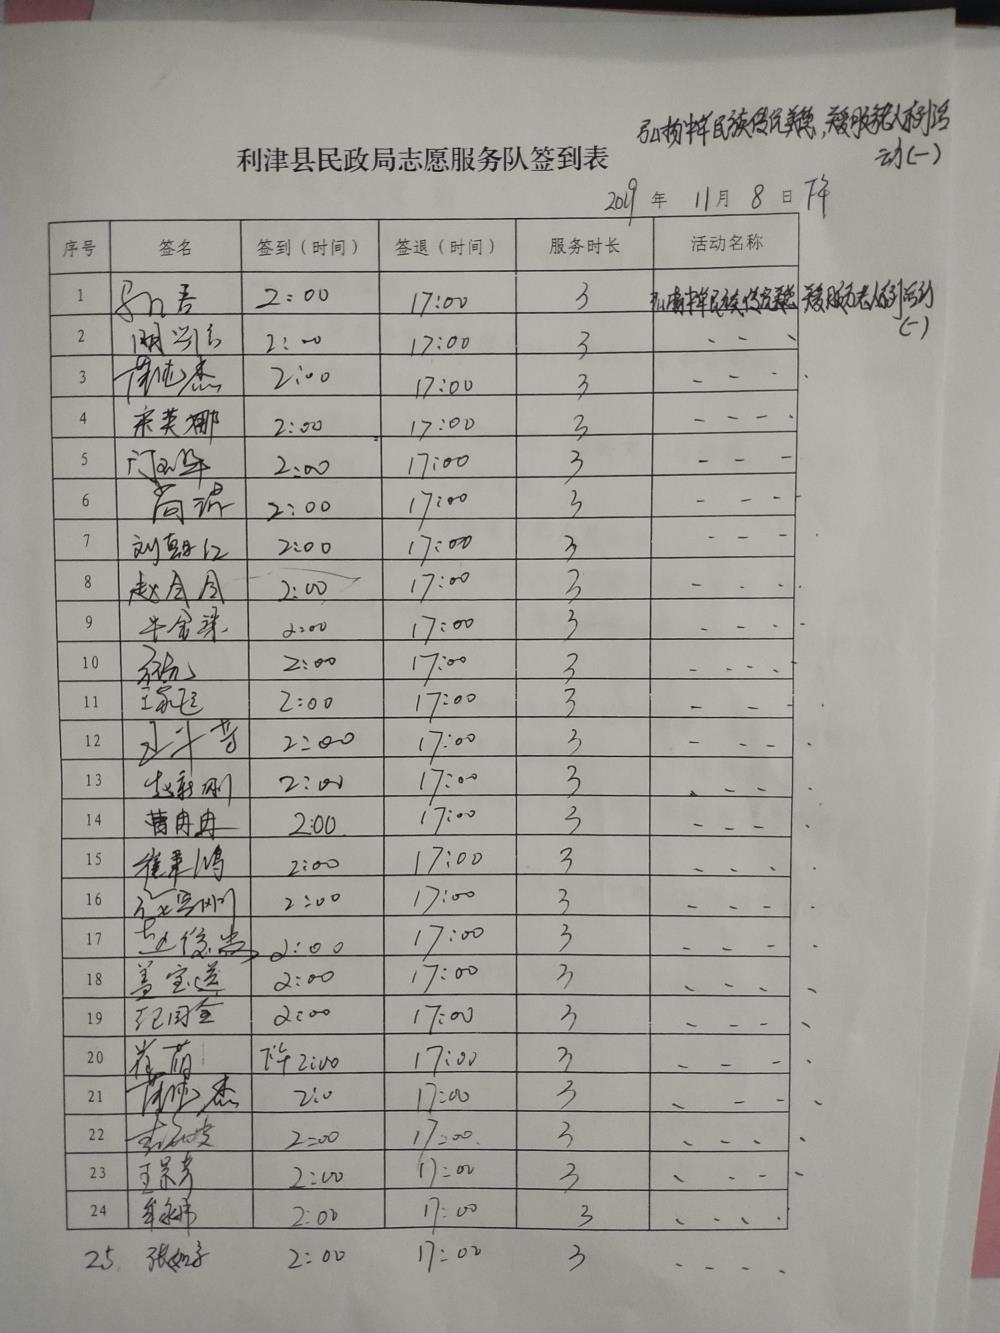 弘扬中华民族传统美德,关爱服务老人系列活
动(一)
利津县民政局志愿服务队签到表
2019 年 11 月 8 日 下午
序号 签名 签到(时间) 签退(时间) 服务时长 活动名称
1 2:00 17:00 3 弘扬中华民族传统美德 关爱服务老人系列活动
(一)
2 2:00 17:00 3 - - -
3 2:00 17:00 3 - - - -
4 宋英娜 2:00 17:00 3 - - - -
5 2:00 17:00 3 - - -
6 尚洁 2:00 17:00 3 - - - -
7 刘朝仁 2:00 17:00 3 - - - -
8 赵会会 2:00 17:00 3 - - - -
9 牛金梁 2:00 17:00 3 - - - -
10 2:00 17:00 3 - - - -
11 王家飞 2:00 17:00 3 - - - -
12 2:00 17:00 3 - - - -
13 赵新刚 2:00 17:00 3 - - - -
14 曹冉冉 2:00 17:00 3 - - - -
15 崔津鸿 2:00 17:00 3 - - - -
16 2:00 17:00 3 - - - -
17 2:00 17:00 3 - - - -
18 盖宝莲 2:00 17:00 3 - - - -
19 纪国金 2:00 17:00 3 - - - -
20 崔萌 下午2:00 17:00 3 - - - -
21 2:0 17:00 3 - - - -
22 2:00 17:00 3 - - - -
23 王景芳 2:00 17:00 3 - - - -
24 2:00 17:00 3 - - - -
25. 张如子 2:00 17:00 3 - - - -